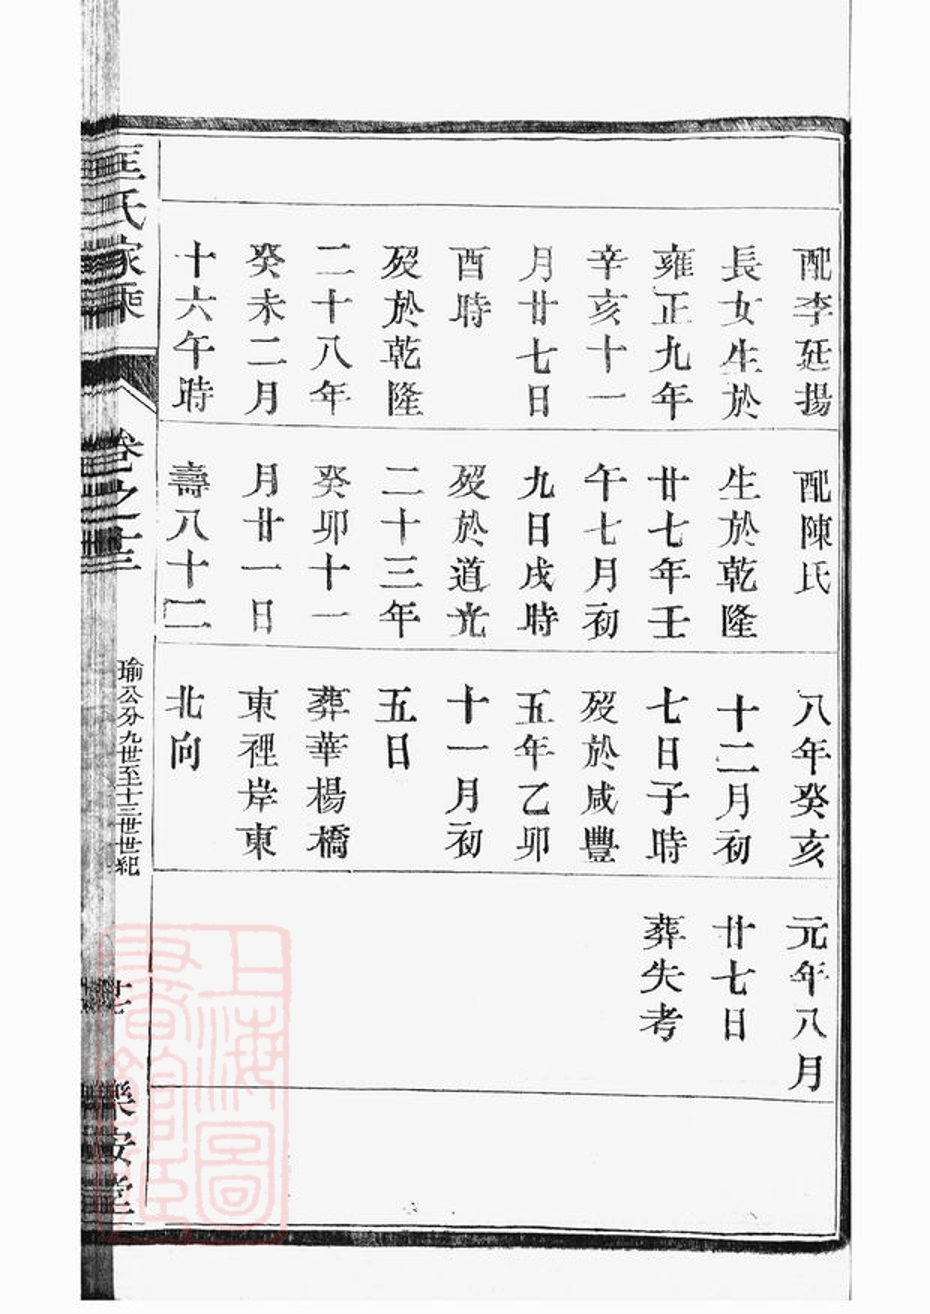 配李延揚
長女生於
雍正九年
辛亥十一
月廿七日
酉時
歿於乾隆
二十八年
癸未二月
十六午時
配陳氏
生於乾隆
廿七年壬
午七月初
九日戌時
歿於道光
二十三年
癸卯十一
月廿一日
壽八十二
八年癸亥
十二月初
七日子時
歿於咸豐
五年乙卯
十一月初
五日
葬華楊橋
東裡岸東
北向
元年八月
廿七日
葬失考
匡氏家乘
卷之
瑜公分九世至十三世世紀
樂安堂
上海圖
書館藏